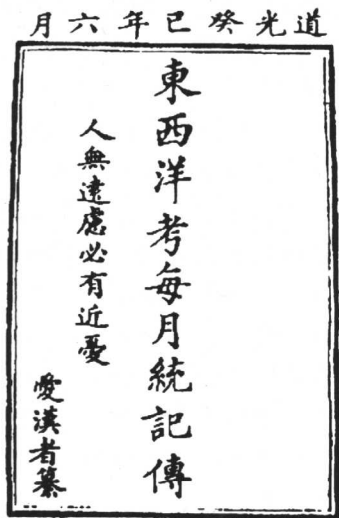 道光癸巳年六月
東西洋考每月統記傳
人無遠慮必有近憂
愛漢者纂